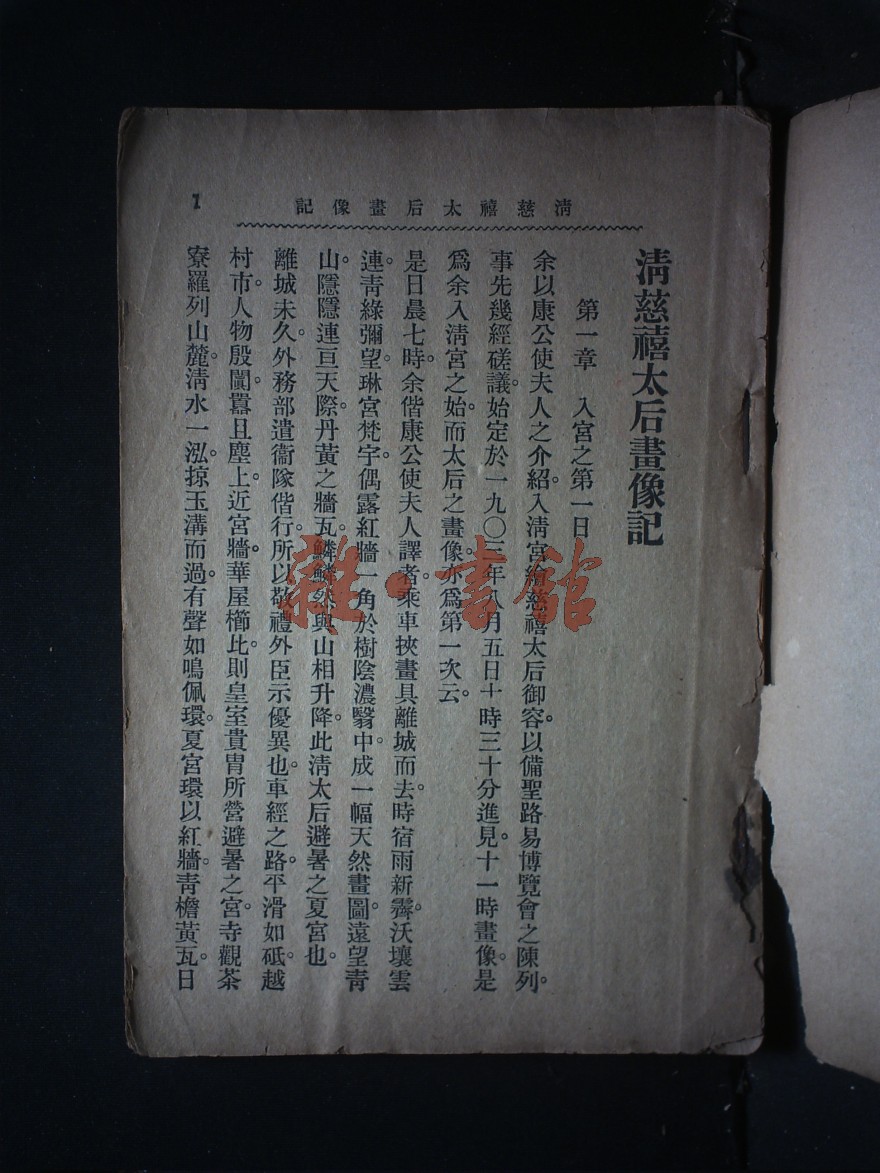 清慈禧太后畫像記
1
清慈禧太后畫像記
第一章 入宮之第一日
余以康公使夫人之介紹。入清宮繪慈禧太后御容。以備聖路易博覽會之陳列。
事先幾經磋議。始定於一九〇三年八月五日十時三十分進見。十一時畫像。是
爲余入清宮之始。而太后之畫像。亦爲第一次云。
是日晨七時。余偕康公使夫人譯者。乘車挾畫具離城而去。時宿雨新霽。沃壤雲
連。青綠彌望。琳宮梵宇。偶露紅牆一角於樹陰濃翳中。成一幅天然畫圖。遠望青
山。隱隱連亘天際。丹黃之牆瓦。鱗鱗然與山相升降。此清太后避暑之夏宮也。
離城未久。外務部遣衞隊偕行。所以敬禮外臣示優異也。車經之路。平滑如砥。越
村市。人物殷闐。囂且塵上。近宮牆。華屋櫛比。則皇室貴胄所營避暑之宮。寺觀茶
寮羅列山麓。清水一泓。掠玉溝而過。有聲如鳴佩環。夏宮環以紅牆。青檐黃瓦。日
雜·書館